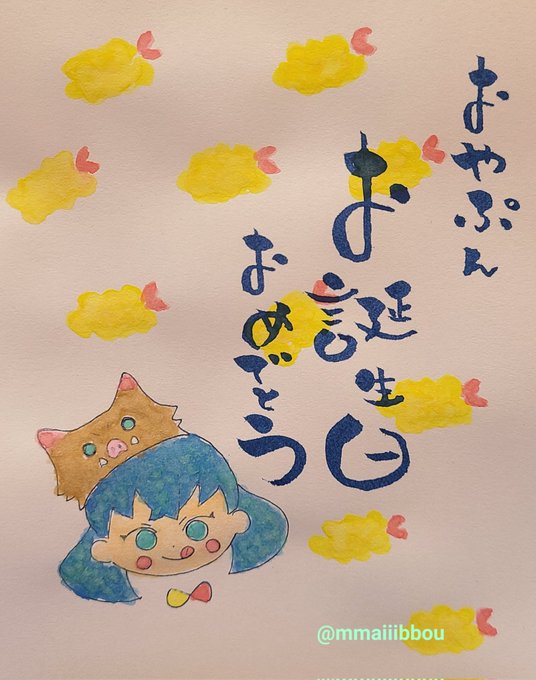 おやぷん
お誕生日
おめでとう
@mmaiiibbou